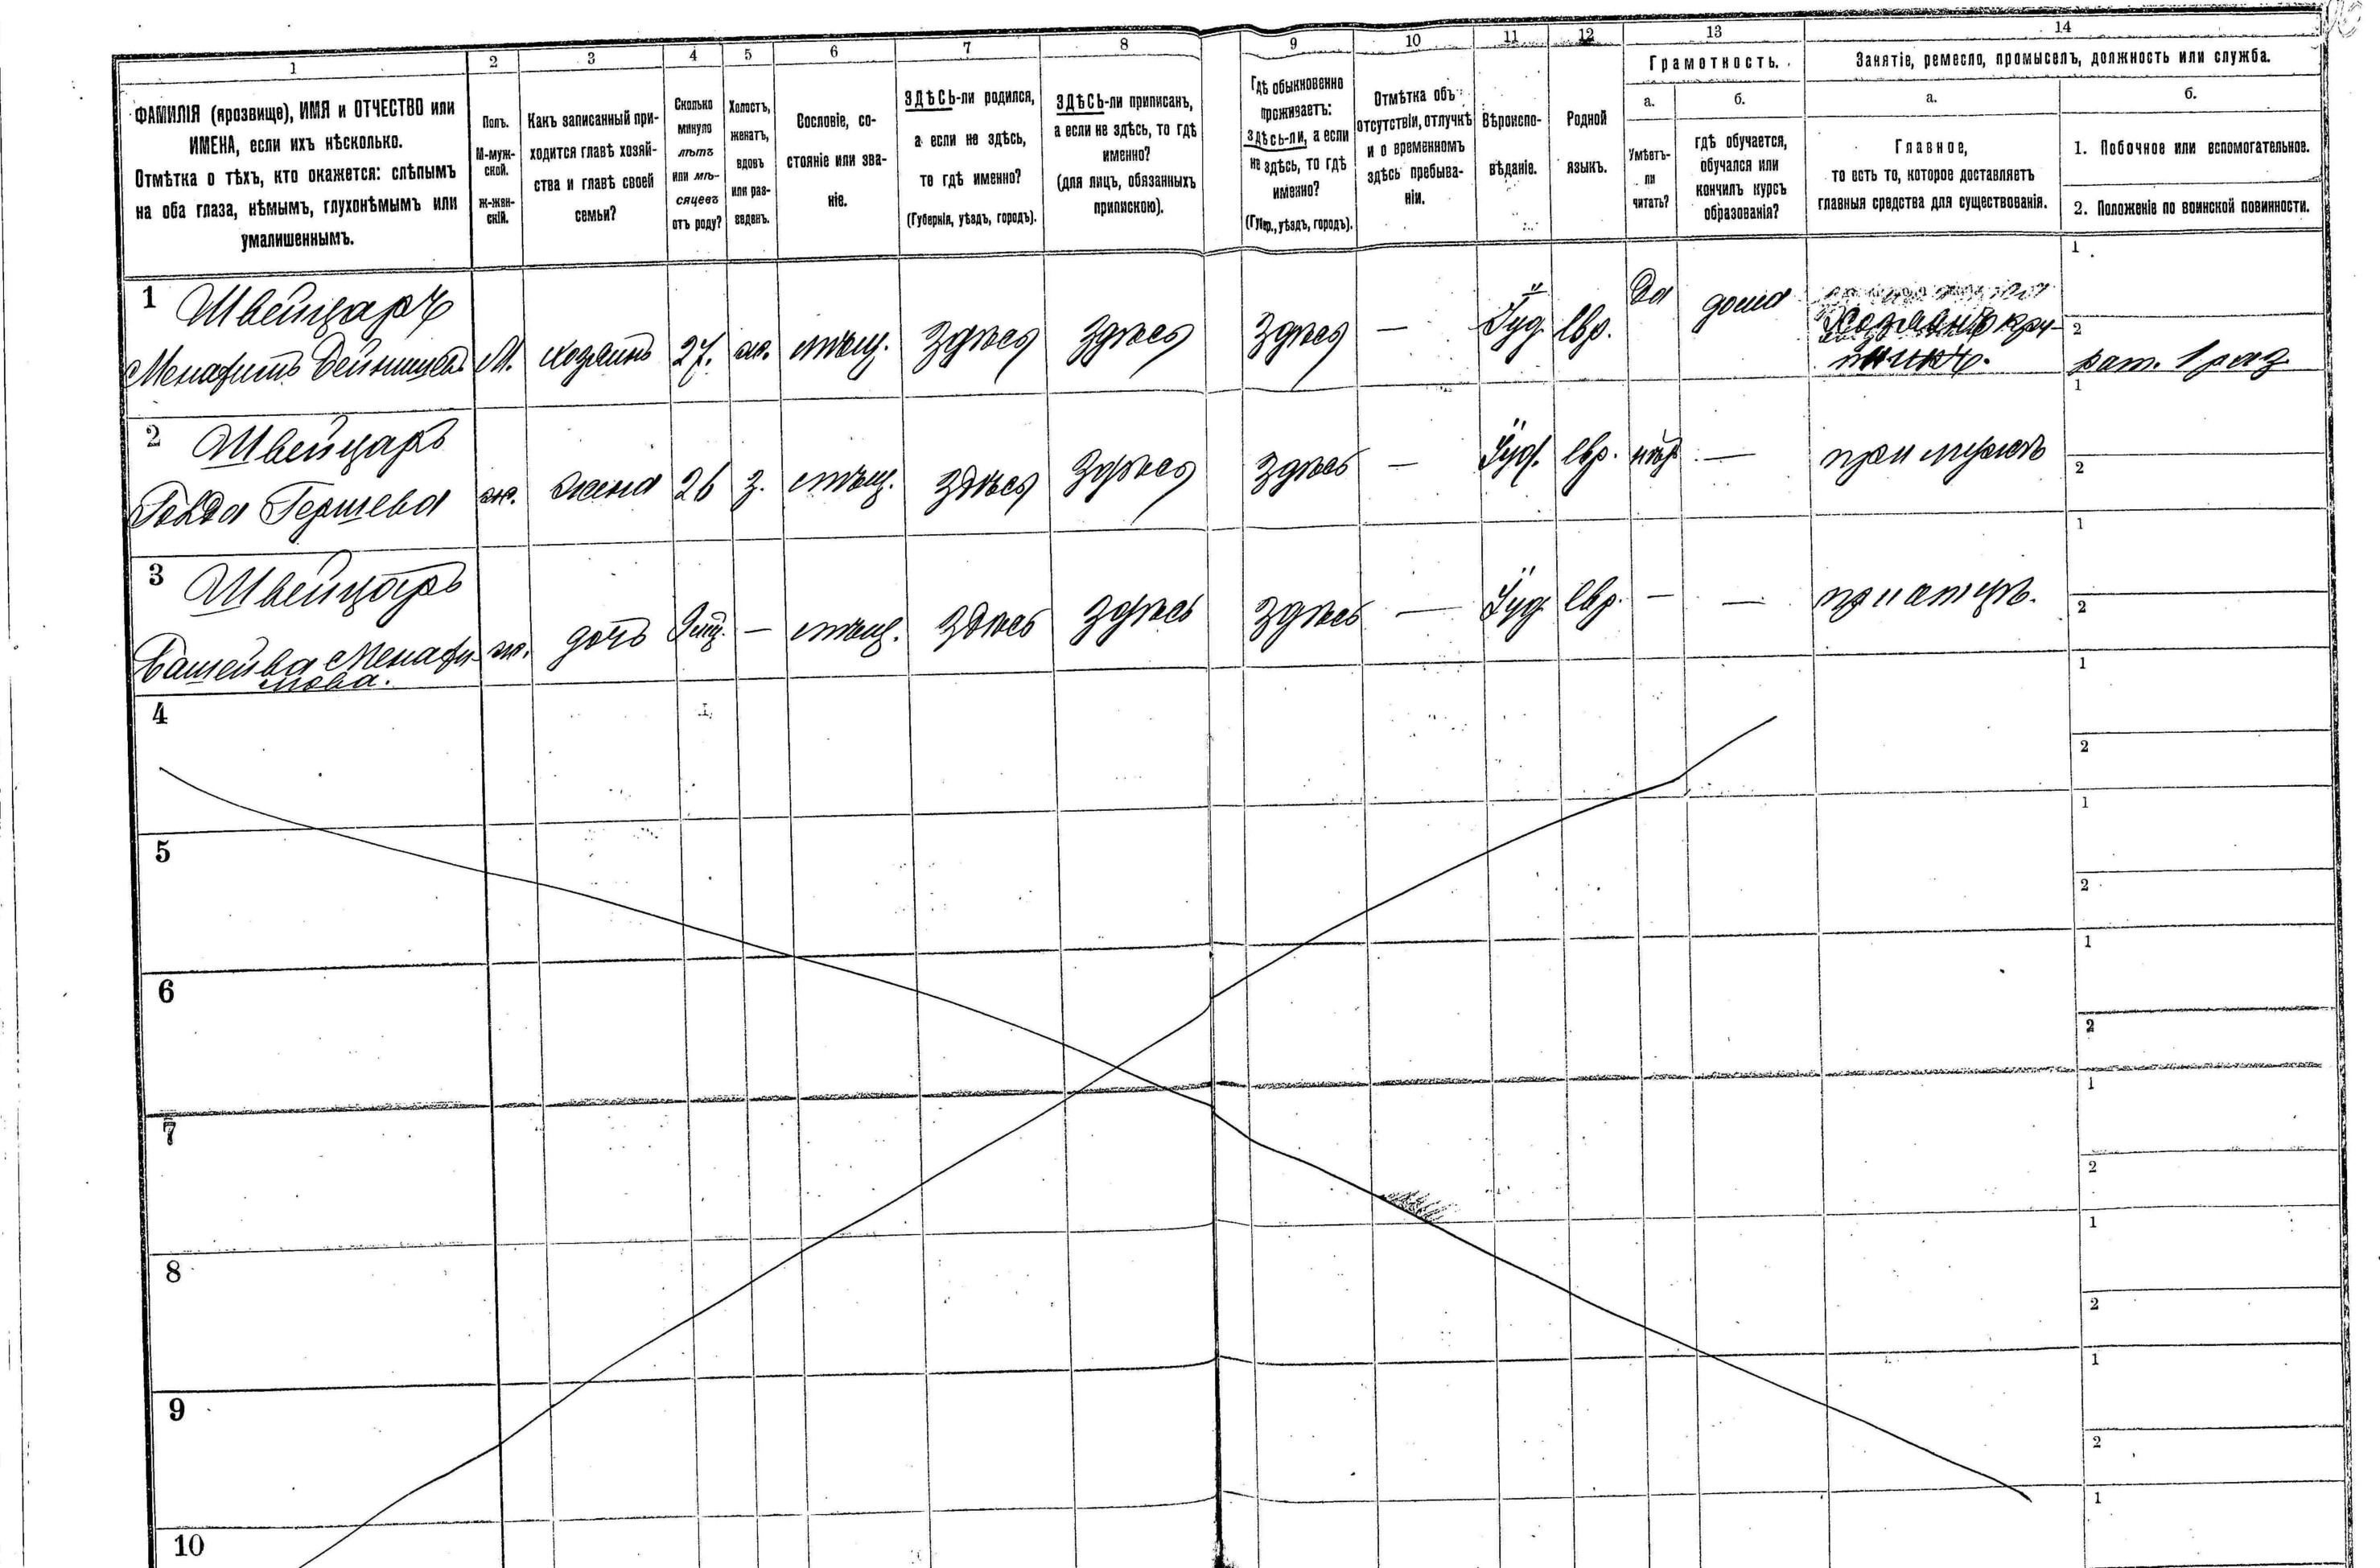 1 2 3 4 5 6 7 8 9 10 11 12 13 14
ФАМИЛІЯ (прозвище), ИМЯ и ОТЧЕСТВО или
ИМЕНА, если ихъ нѣсколько.
Отмѣтка о тѣхъ, кто окажется: слѣпымъ
на оба глаза, нѣмымъ, глухонѣмымъ или
умалишеннымъ.
Полъ.
М-муж-
ской.
Ж-жен-
скій.
Какъ записанный при-
ходится главѣ хозяй-
ства и главѣ своей
семьи?
Сколько
минуло
лѣтъ
или мѣ-
сяцевъ
отъ роду?
Холостъ,
женатъ,
вдовъ
или раз-
веденъ.
Сословіе, со-
стояніе или зва-
ніе.
ЗДѢСЬ-ли родился,
а если не здѣсь,
то гдѣ именно?
(Губернія, уѣздъ, городъ).
ЗДѢСЬ-ли приписанъ,
а если не здѣсь, то гдѣ
именно?
(для лицъ, обязанныхъ
припискою).
Гдѣ обыкновенно
проживаетъ:
здѣсь-ли, а если
не здѣсь, то гдѣ
именно?
(Губ., уѣздъ, городъ).
Отмѣтка объ
отсутствіи, отлучкѣ
и о временномъ
здѣсь пребыва-
ніи.
Вѣроиспо-
вѣданіе.
Родной
языкъ.
Грамотность.
а.
Умѣетъ-
ли
читать?
б.
гдѣ обучается,
обучался или
кончилъ курсъ
образованія?
Занятіе, ремесло, промыселъ, должность или служба.
а.
Главное,
то есть то, которое доставляетъ
главныя средства для существованія.
б.
1. Побочное или вспомогательное.
2. Положеніе по воинской повинности.
1 Швейцаръ
М. хозяинъ 27. ж. мѣщ. Здѣсь Здѣсь Здѣсь — Іуд. Евр. Да дома
1
2 рат. 1 раз.
2 Швейцаръ
Голда Гершева ж. жена 26 з. мѣщ. Здѣсь Здѣсь Здѣсь — Іуд. Евр. нѣтъ — при мужѣ
1
2
3 Швейцаръ
Башейва Менаси- ж. дочь — мѣщ. Здѣсь Здѣсь Здѣсь — Іуд. Евр. — — при отцѣ.
мова.
1
2
4
1
2
5
1
2
6
1
2
7
1
2
8
1
2
9
1
2
10
1